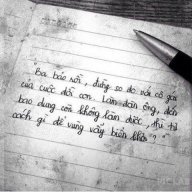 "Ba bảo rồi, đừng so đo với cô gái
của cuộc đời con. Làm đàn ông, đến
bao dung còn không làm được, thì tư
cách gì để vùng vẫy biển khơi".